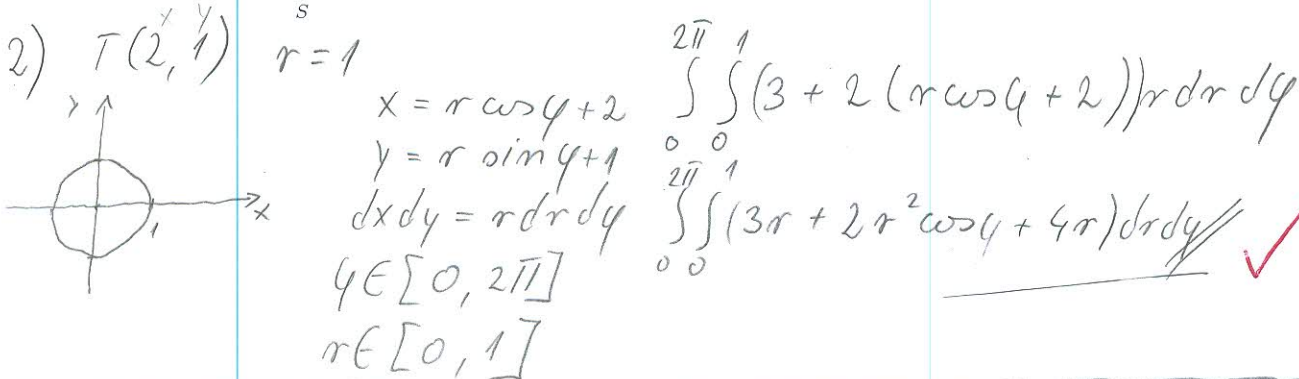 s
2) T(2, 1) r = 1
x y
y
x
1
x = r cos φ + 2
y = r sin φ + 1
dxdy = r dr dφ
φ ∈ [0, 2π]
r ∈ [0, 1]
∫₀^2π ∫₀^1 (3 + 2(r cos φ + 2)) r dr dφ
∫₀^2π ∫₀^1 (3r + 2r² cos φ + 4r) dr dφ